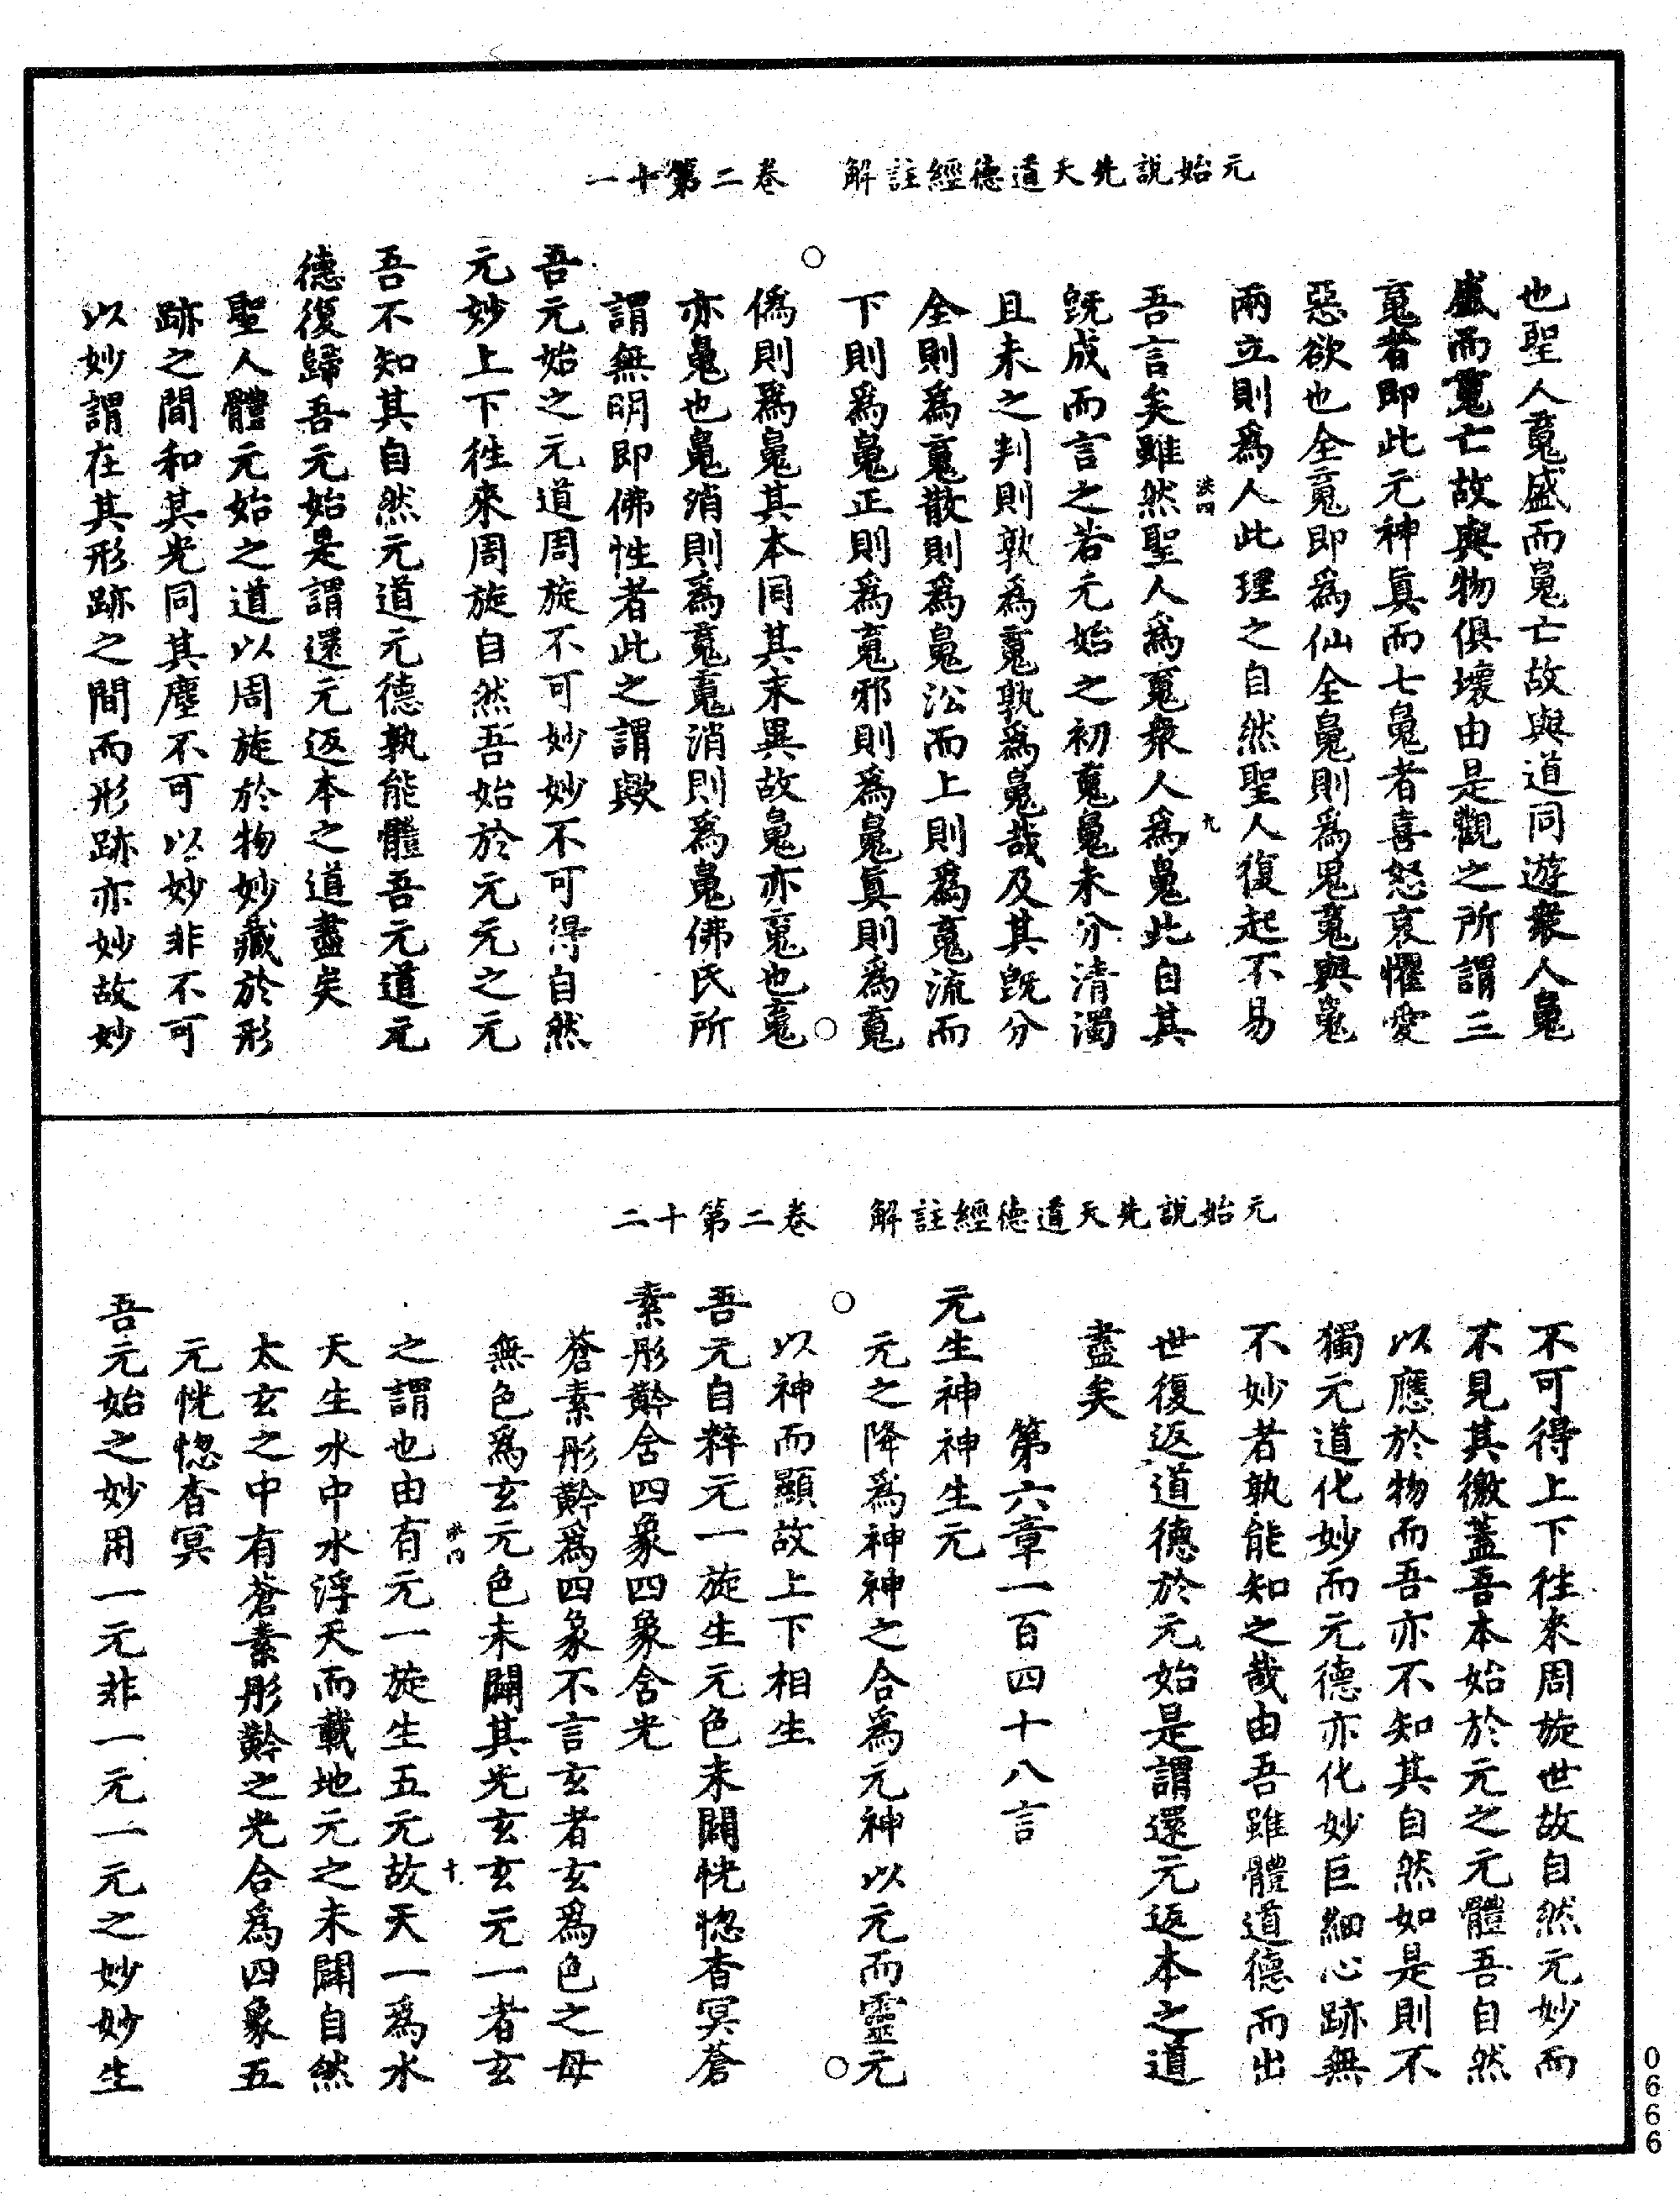 元始說先天道德經註解　卷二第十一
也聖人魂盛而魄亡故與道同遊衆人魄
盛而魂亡故與物俱壞由是觀之所謂三
魂者即此元神眞而七魄者喜怒哀懼愛
惡欲也全魂即爲仙全魄則爲鬼魂與魄
兩立則爲人此理之自然聖人復起不易
九
吾言矣雖然聖人爲魂衆人爲魄此自其
旣成而言之若元始之初魂魄未分清濁
且未之判則孰爲魂孰爲魄哉及其旣分
全則爲魂散則爲魄㳂而上則爲魂流而
下則爲魄正則爲魂邪則爲魄眞則爲魂
僞則爲魄其本同其末異故魄亦魂也魂
亦魄也魄消則爲魂魂消則爲魄佛氏所
謂無明即佛性者此之謂歟
吾元始之元道周旋不可妙妙不可得自然
元妙上下徃來周旋自然吾始於元元之元
吾不知其自然元道元德孰能體吾元道元
德復歸吾元始是謂還元返本之道盡矣
聖人體元始之道以周旋於物妙藏於形
跡之間和其光同其塵不可以妙非不可
以妙謂在其形跡之間而形跡亦妙故妙
元始說先天道德經註解　卷二第十二
不可得上下徃來周旋世故自然元妙而
不見其徼蓋吾本始於元之元體吾自然
以應於物而吾亦不知其自然如是則不
獨元道化妙而元德亦化妙巨細心跡無
不妙者孰能知之哉由吾雖體道德而出
世復返道德於元始是謂還元返本之道
盡矣
第六章一百四十八言
元生神神生元
元之降爲神神之合爲元神以元而靈元
以神而顯故上下相生
吾元自粹元一旋生元色未闢恍惚杳冥蒼
素彤黅含四象四象含光
蒼素彤黅爲四象不言玄者玄爲色之母
無色爲玄元色未闢其光玄玄元一者玄
十
之謂也由有元一旋生五元故天一爲水
天生水中水浮天而載地元之未闢自然
太玄之中有蒼素彤黅之光合爲四象五
元恍惚杳冥
吾元始之妙用一元非一元一元之妙妙生
0666